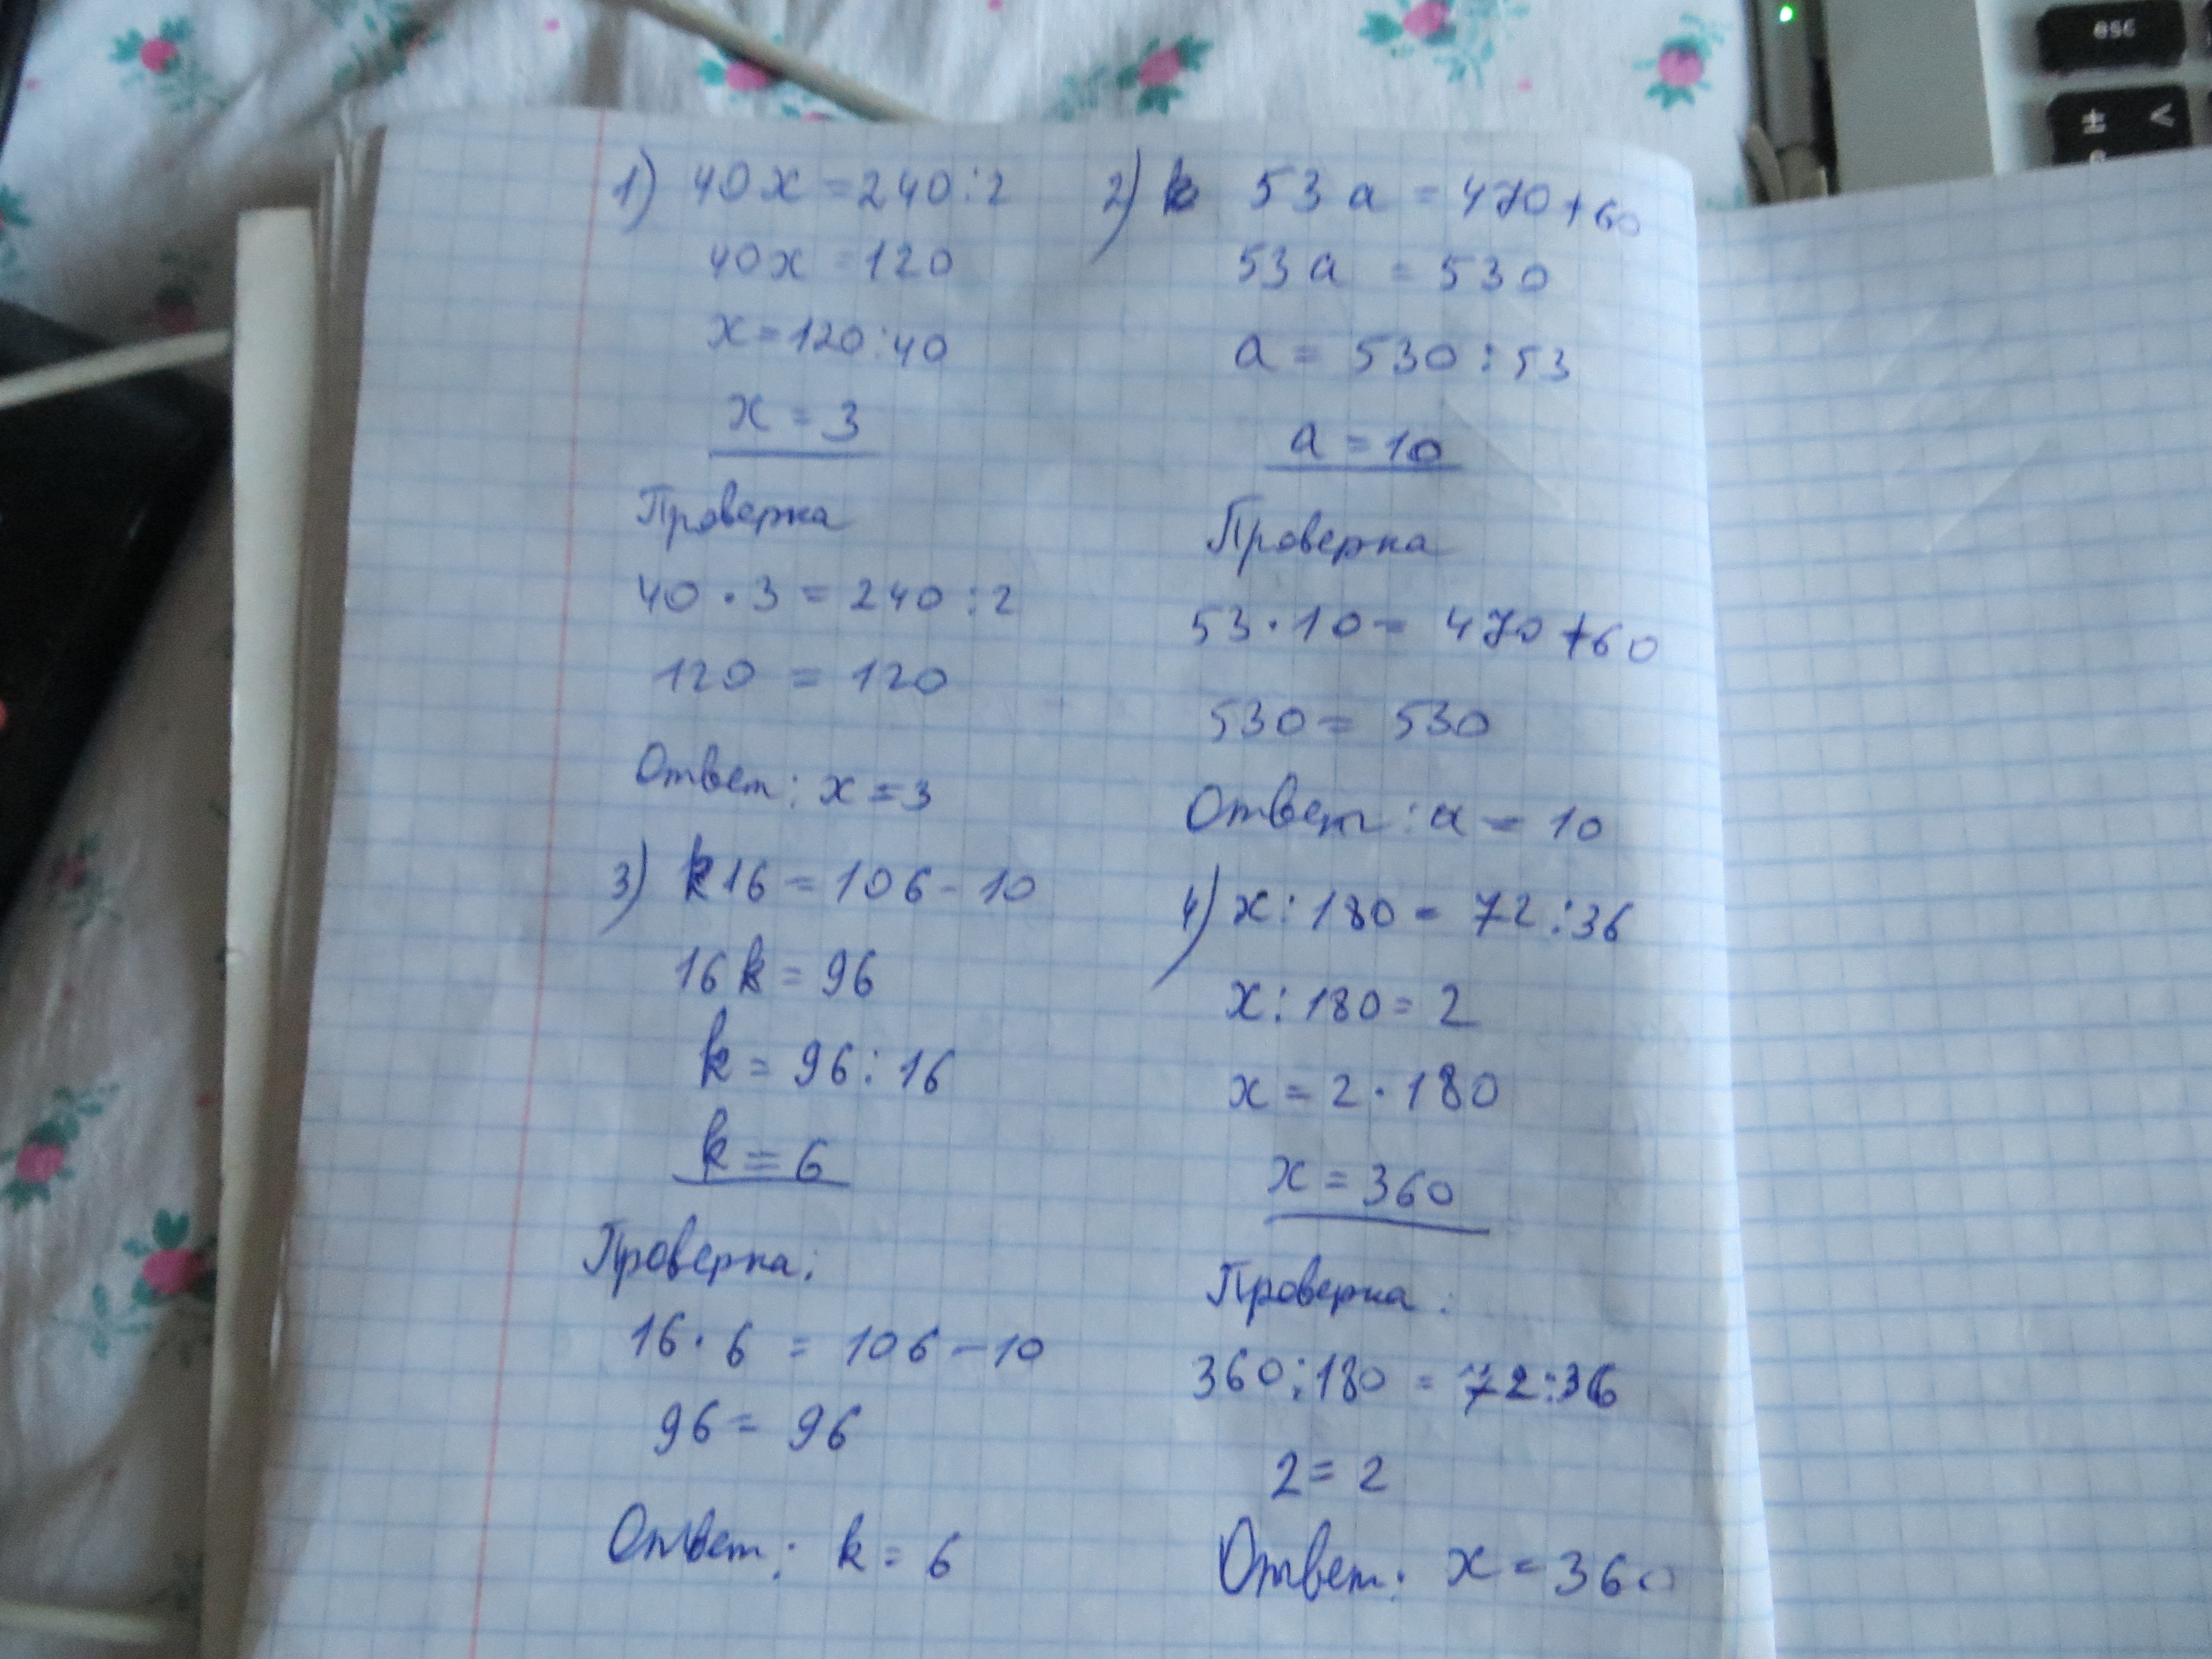 1) 40x = 240 : 2
40x = 120
x = 120 : 40
x = 3
Проверка
40 · 3 = 240 : 2
120 = 120
Ответ: x = 3
2) 53a = 470 + 60
53a = 530
a = 530 : 53
a = 10
Проверка
53 · 10 = 470 + 60
530 = 530
Ответ: a = 10
3) k16 = 106 - 10
16k = 96
k = 96 : 16
k = 6
Проверка:
16 · 6 = 106 - 10
96 = 96
Ответ: k = 6
4) x : 180 = 72 : 36
x : 180 = 2
x = 2 · 180
x = 360
Проверка:
360 : 180 = 72 : 36
2 = 2
Ответ: x = 360
esc